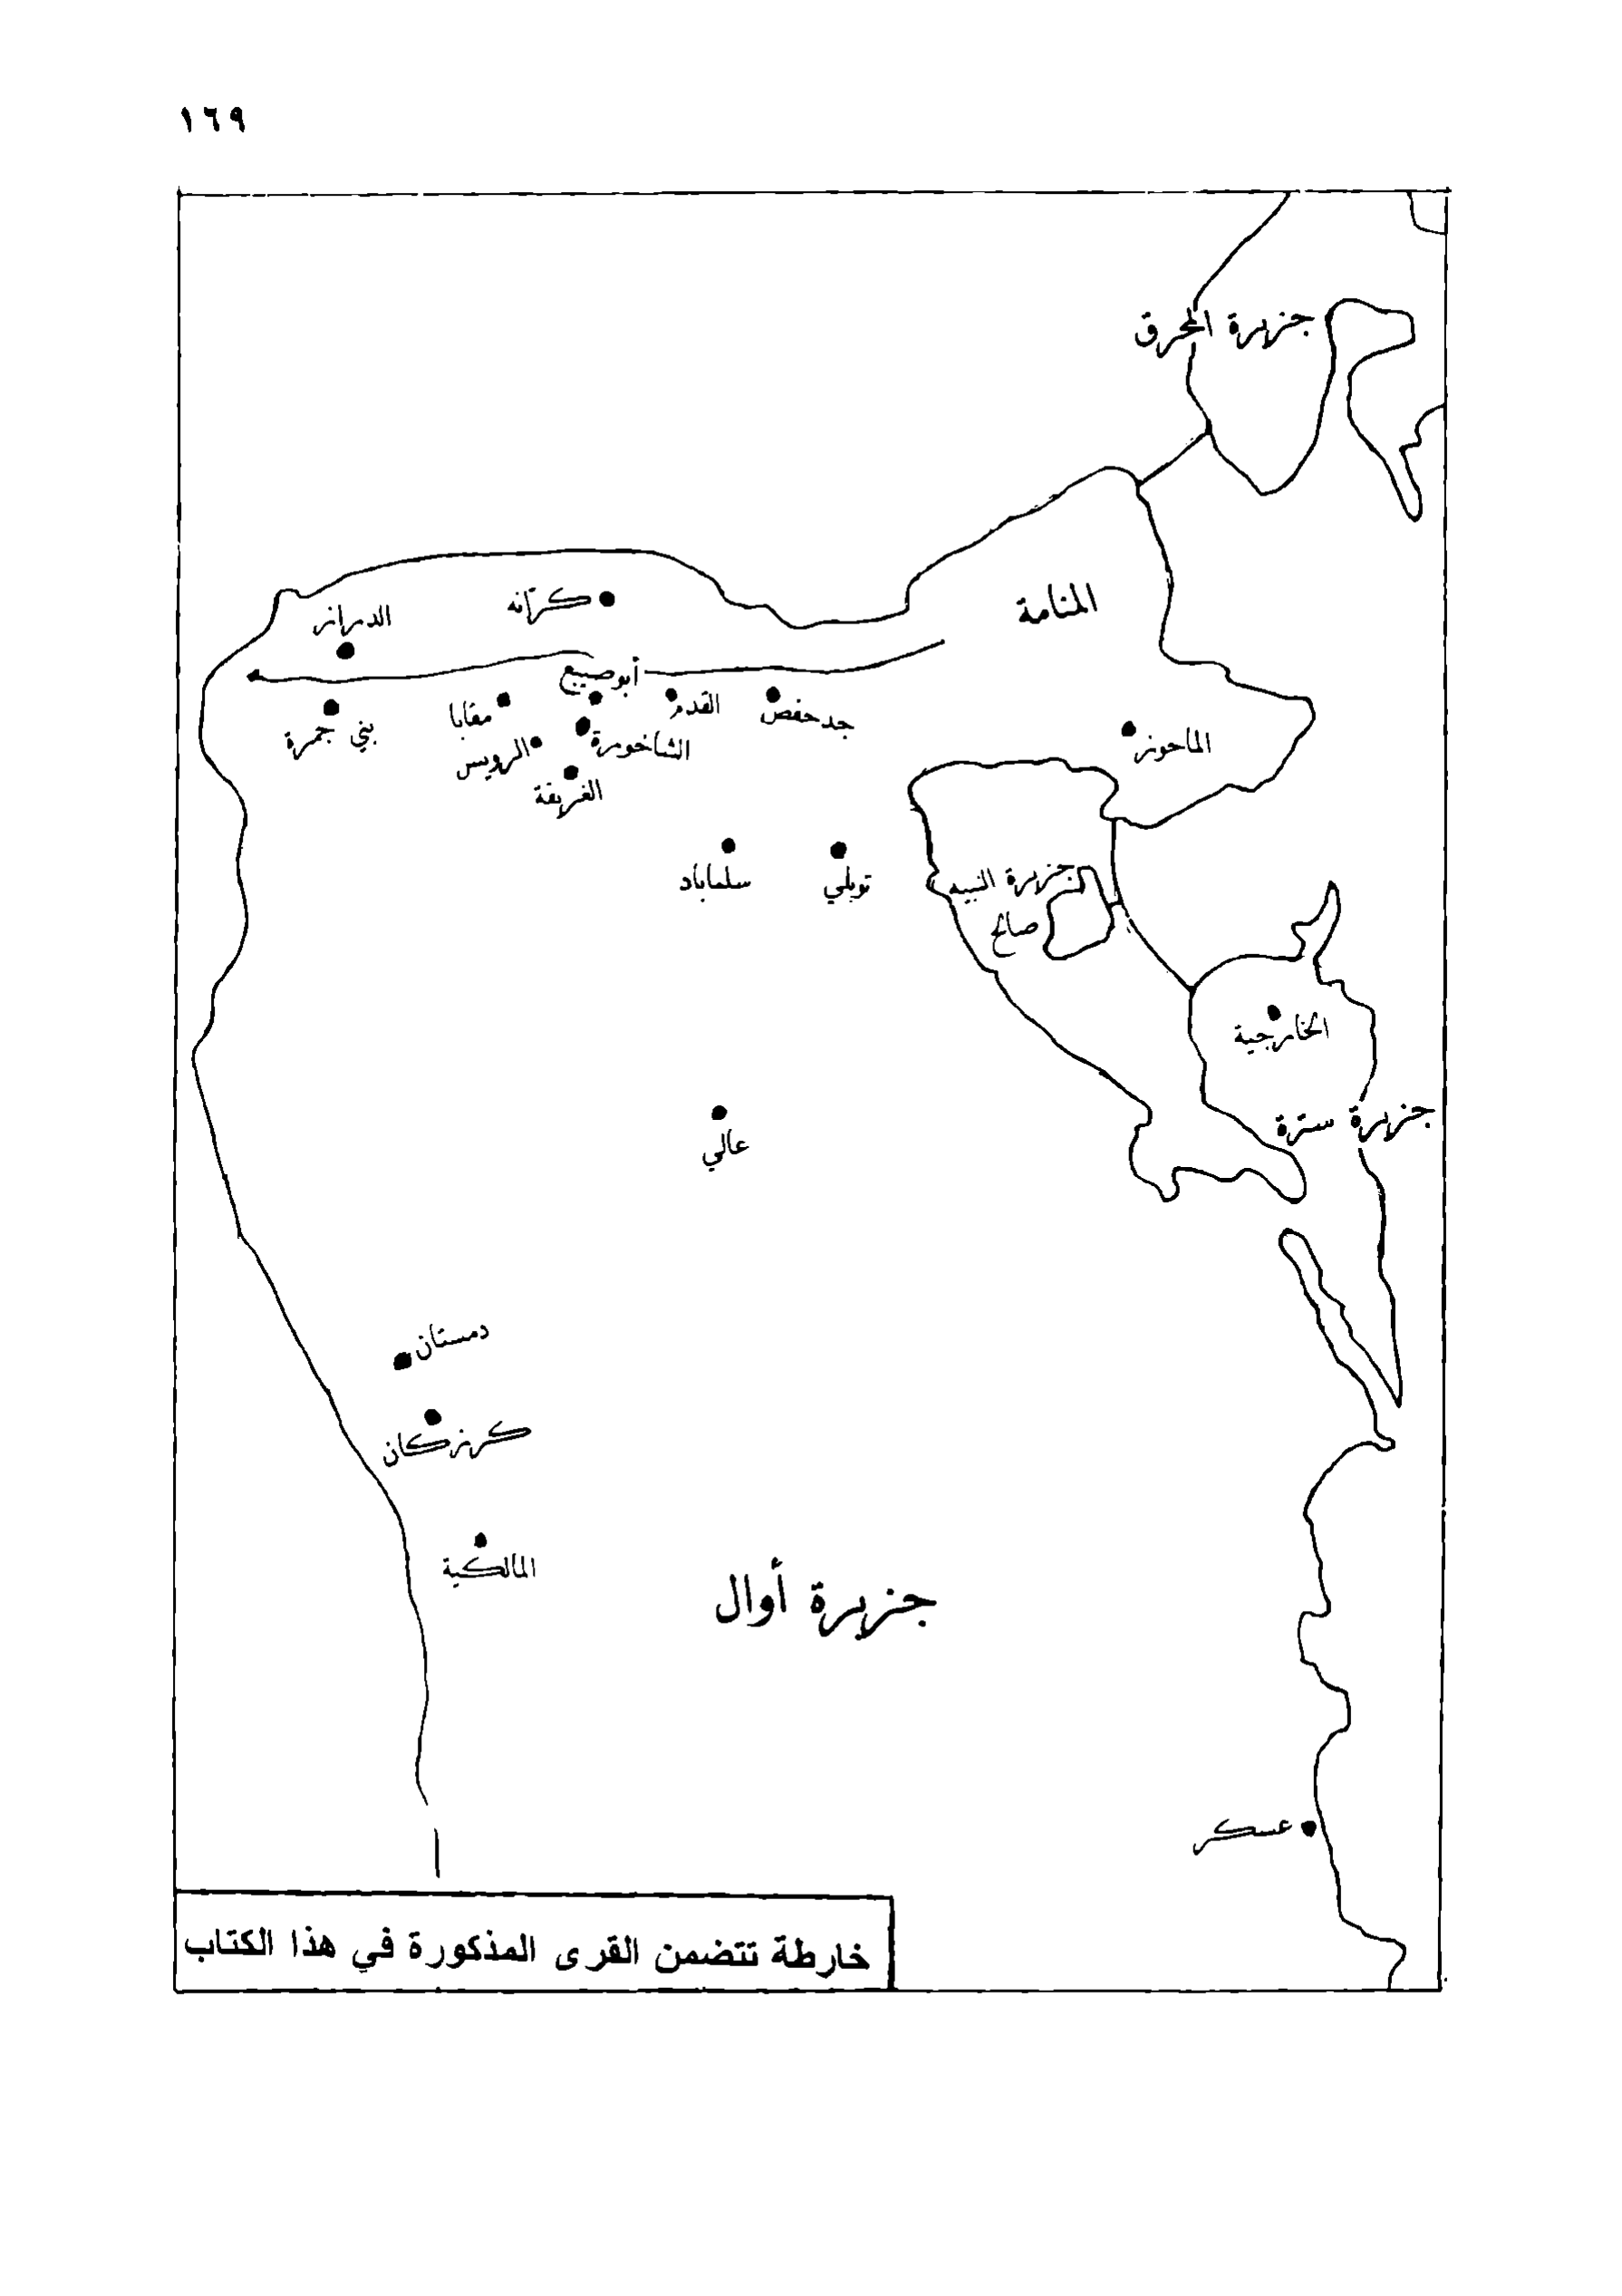 ١٦٩
جزيرة المحرق
المنامة
كرّانه
الدراز
أبوصيبع
جدحفص
القدم
مقابا
بني جمرة
الشاخورة
الرويس
الغريفة
الماحوز
توبلي
سلماباد
جزيرة النبيه
صالح
الخارجية
جزيرة سترة
عالي
دمستان
كرزكان
المالكية
جزيرة أوال
عسكر
خارطة تتضمن القرى المذكورة في هذا الكتاب